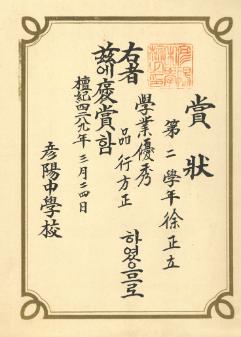 賞狀
第二學年 徐正立
右者 學業優秀
品行方正 하영므로
玆에 褒賞함
檀紀四二八九年 三月二四日
彦陽中學校